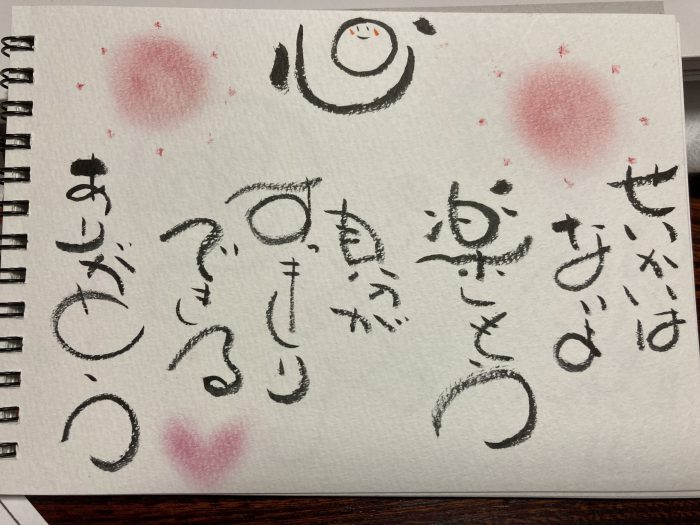 心
せいかいは
ないよ
楽しもう
自分が
すっきり
できる